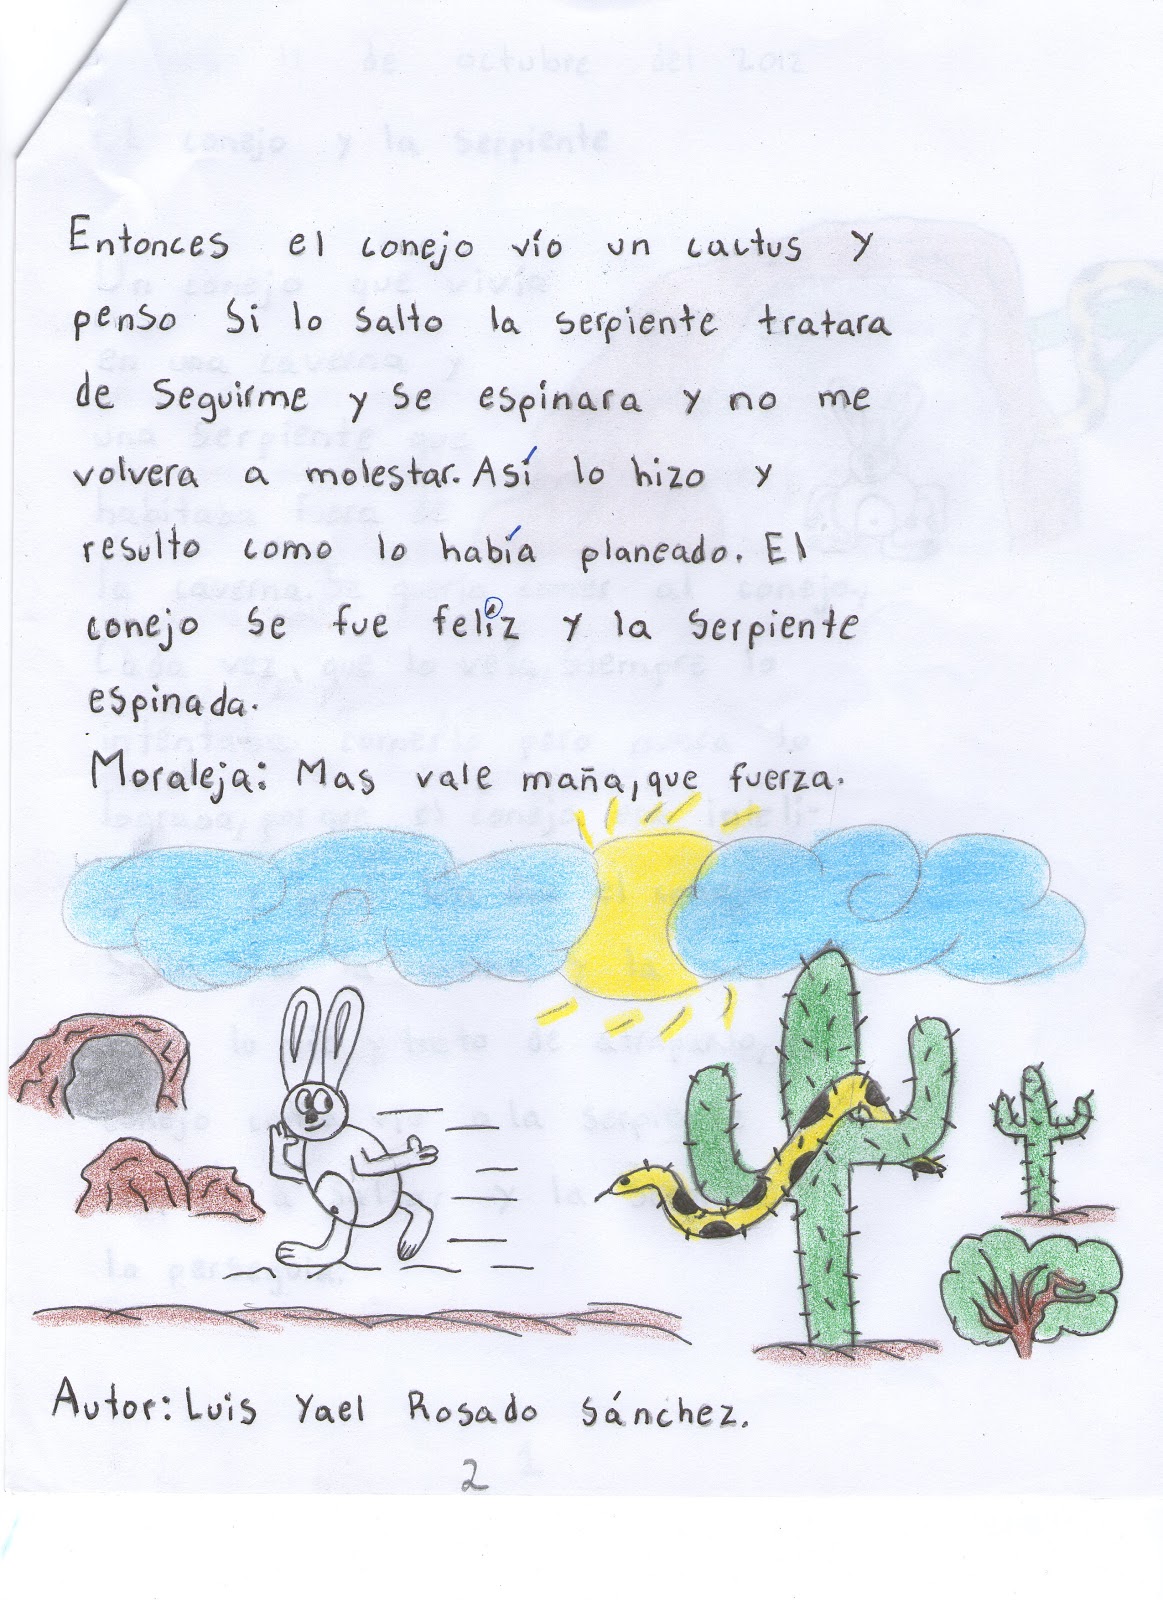 Entonces el conejo vío un cactus y
penso si lo salto la serpiente tratara
de seguirme y se espinara y no me
volvera a molestar. Así lo hizo y
resulto como lo había planeado. El
conejo se fue feliz y la serpiente
espinada.
Moraleja: Mas vale maña, que fuerza.
Autor: Luis Yael Rosado Sánchez.
2